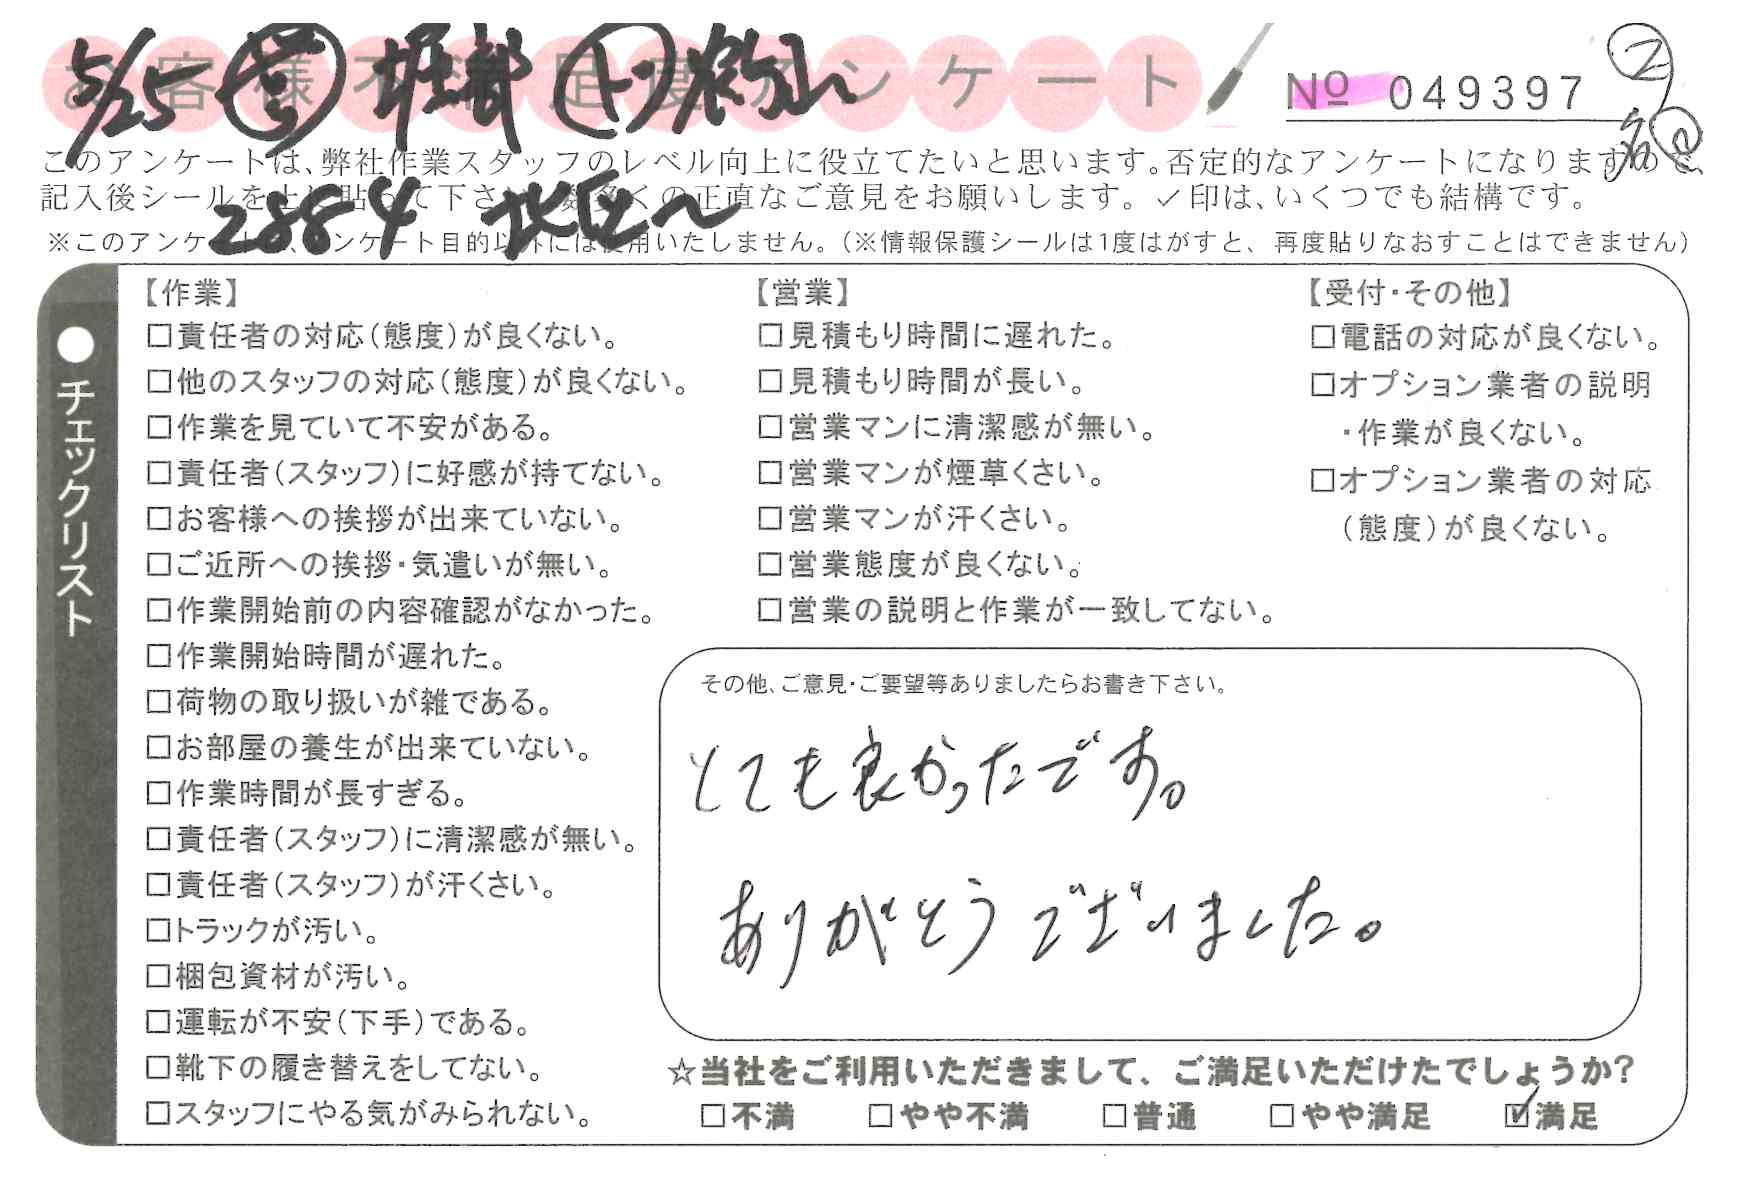 お客様不満足度アンケート
5/25
№ 049397
2
このアンケートは、弊社作業スタッフのレベル向上に役立てたいと思います。否定的なアンケートになりますので、
記入後シールを上に貼って下さい。数多くの正直なご意見をお願いします。✓印は、いくつでも結構です。
2884
※このアンケートは、アンケート目的以外には使用いたしません。（※情報保護シールは1度はがすと、再度貼りなおすことはできません）
●チェックリスト
【作業】
□責任者の対応（態度）が良くない。
□他のスタッフの対応（態度）が良くない。
□作業を見ていて不安がある。
□責任者（スタッフ）に好感が持てない。
□お客様への挨拶が出来ていない。
□ご近所への挨拶・気遣いが無い。
□作業開始前の内容確認がなかった。
□作業開始時間が遅れた。
□荷物の取り扱いが雑である。
□お部屋の養生が出来ていない。
□作業時間が長すぎる。
□責任者（スタッフ）に清潔感が無い。
□責任者（スタッフ）が汗くさい。
□トラックが汚い。
□梱包資材が汚い。
□運転が不安（下手）である。
□靴下の履き替えをしてない。
□スタッフにやる気がみられない。
【営業】
□見積もり時間に遅れた。
□見積もり時間が長い。
□営業マンに清潔感が無い。
□営業マンが煙草くさい。
□営業マンが汗くさい。
□営業態度が良くない。
□営業の説明と作業が一致してない。
【受付・その他】
□電話の対応が良くない。
□オプション業者の説明
・作業が良くない。
□オプション業者の対応
（態度）が良くない。
その他、ご意見・ご要望等ありましたらお書き下さい。
とても良かったです。
ありがとうございました。
☆当社をご利用いただきまして、ご満足いただけたでしょうか？
□不満 □やや不満 □普通 □やや満足 ☑満足